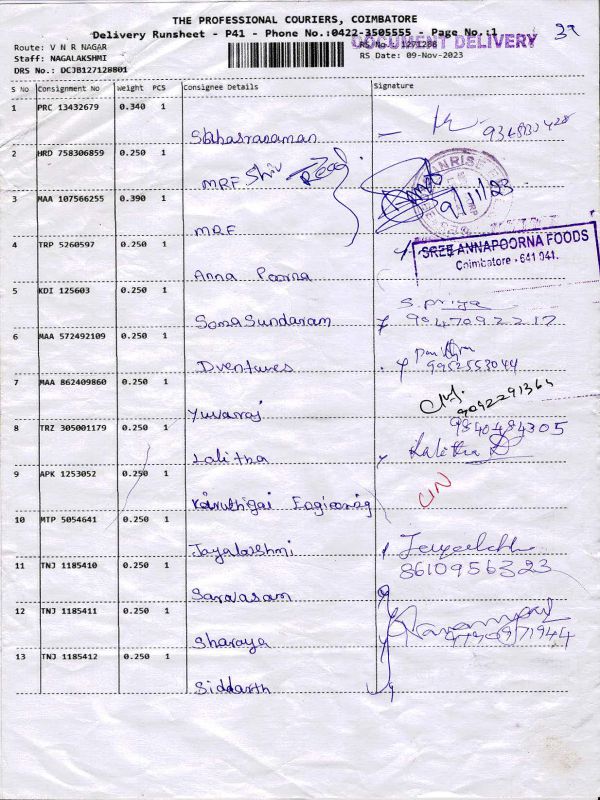 THE PROFESSIONAL COURIERS, COIMBATORE
Delivery Runsheet - P41 - Phone No.:0422-3505555 - Page No.:1
DOCUMENT DELIVERY
39
Route: V N R NAGAR
RS No.: 1271288
Staff: NAGALAKSHMI
RS Date: 09-Nov-2023
DRS No.: DCJB127128801
S No Consignment No Weight PCS Consignee Details Signature
1 PRC 13432679 0.340 1
2 HRD 758306859 0.250 1
MRF
9/11/23
3 MAA 107566255 0.390 1
MRF
SREE ANNAPOORNA FOODS
Coimbatore - 641 041.
4 TRP 5260597 0.250 1
Anna Poorna
5 KDI 125603 0.250 1
S. Priya
SomaSundaram 9847092217
6 MAA 572492109 0.250 1
Dventures 9952553044
7 MAA 862409860 0.250 1
9042291364
Yuvaraj
8 TRZ 305001179 0.250 1
9840484305
Lalitha Lalitha
9 APK 1253052 0.250 1
10 MTP 5054641 0.250 1
Jayalakshmi
8610956323
11 TNJ 1185410 0.250 1
12 TNJ 1185411 0.250 1
Sharaya
13 TNJ 1185412 0.250 1
Siddarth